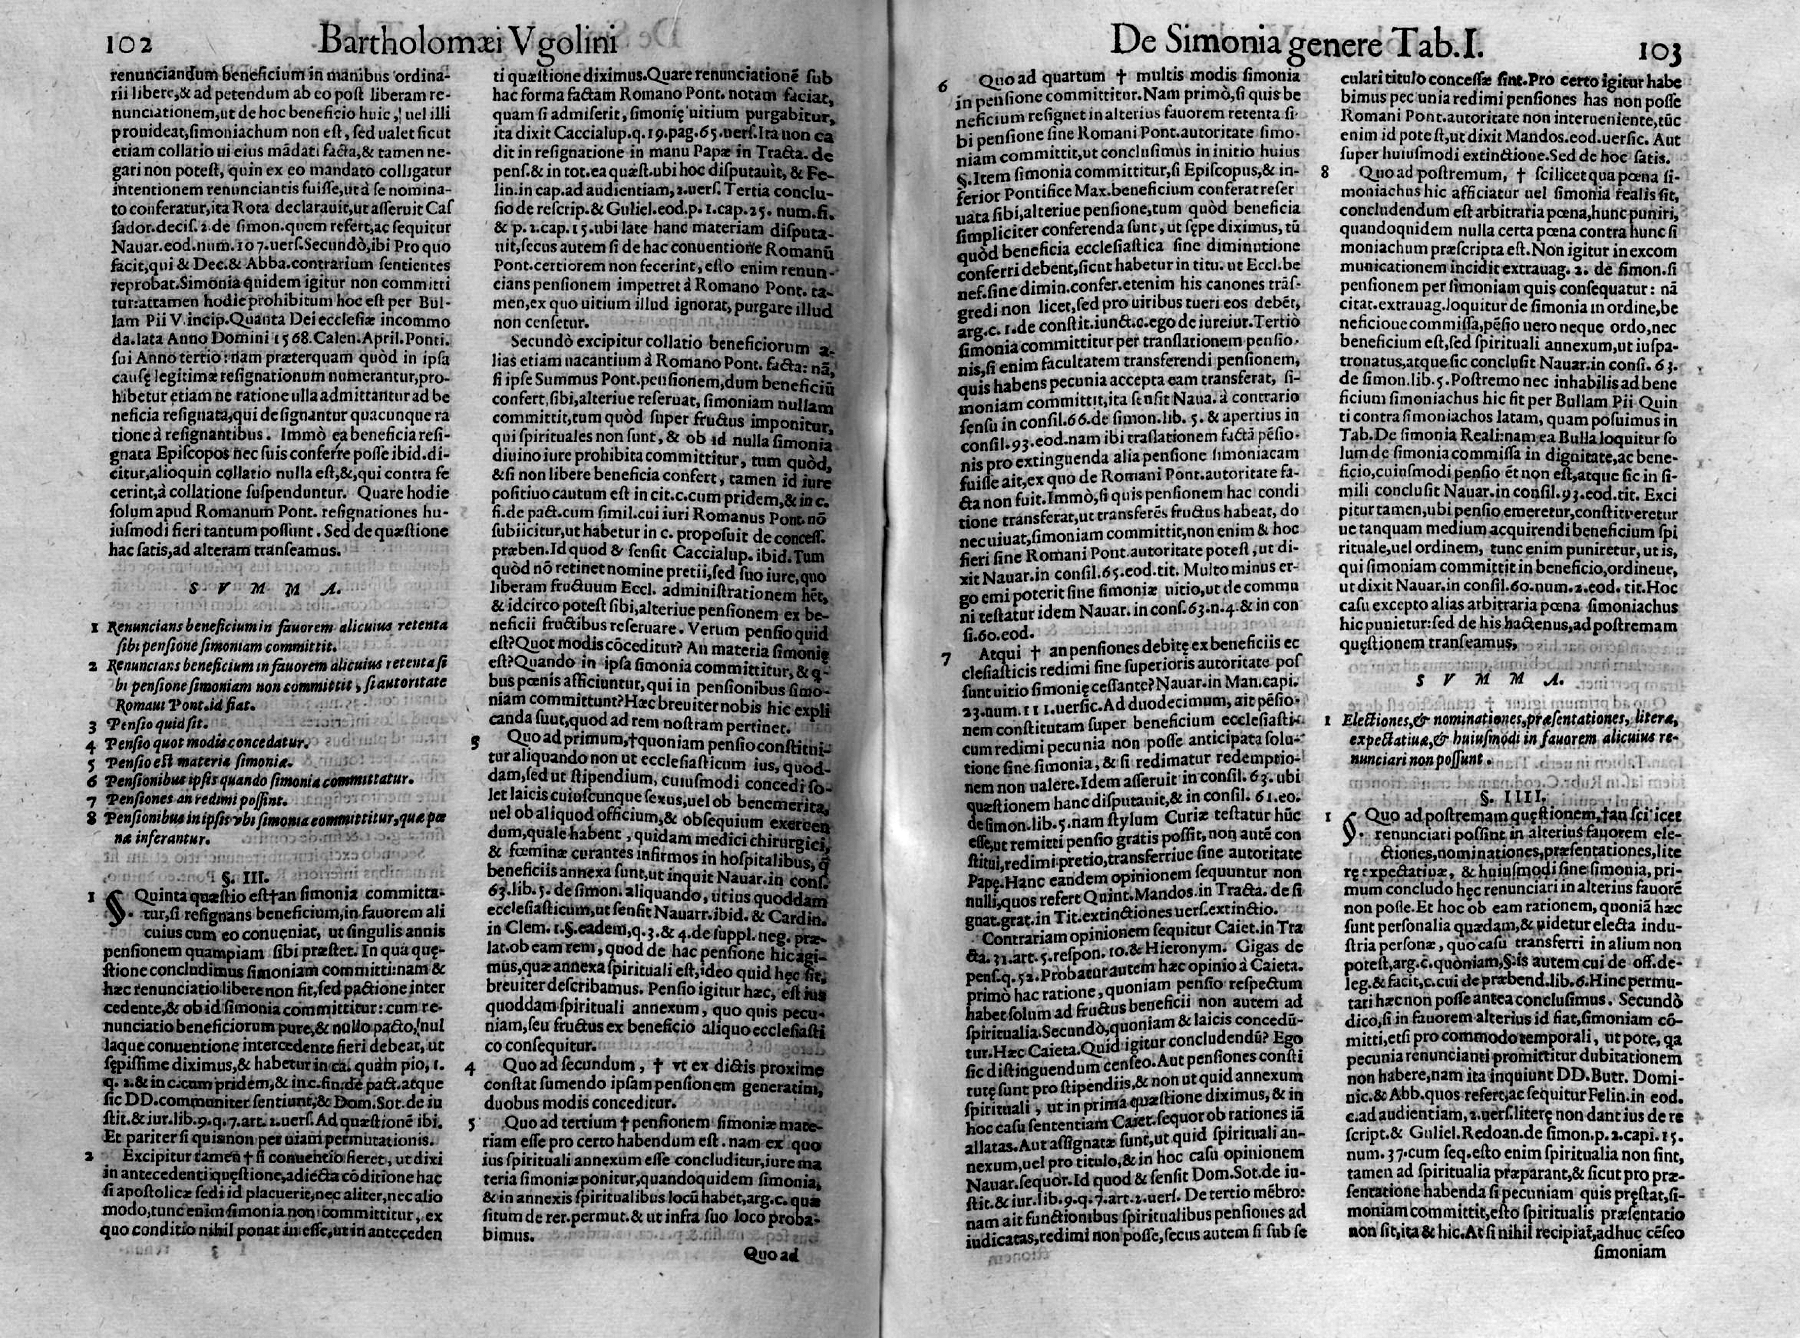 102 Bartholomæi Vgolini
renunciandum beneficium in manibus ordina-
rii libere, & ad petendum ab eo post liberam re-
nunciationem, ut de hoc beneficio huic, uel illi
prouideat, simoniachum non est, sed ualet sicut
etiam collatio ui eius mãdati facta, & tamen ne-
gari non potest, quin ex eo mandato colligatur
intentionem renunciantis fuisse, ut à se nomina-
to conferatur, ita Rota declarauit, ut asseruit Cas
sador. decis. 2. de simon. quem refert, ac sequitur
Nauar. eod. num. 107. uers. Secundò, ibi Pro quo
facit, qui & Dec. & Abba. contrarium sentientes
reprobat. Simonia quidem igitur non committi
tur: attamen hodie prohibitum hoc est per Bul-
lam Pii V. incip. Quanta Dei ecclesiæ incommo
da. lata Anno Domini 1568. Calen. April. Ponti.
sui Anno tertio: nam præterquam quòd in ipsa
causę legitimæ resignationum numerantur, pro-
hibetur etiam ne ratione ulla admittantur ad be
neficia resignata, qui designantur quacunque ra
tione à resignantibus. Immò ea beneficia resi-
gnata Episcopos nec suis conferre posse ibid. di-
citur, alioquin collatio nulla est, &, qui contra fe
cerint, à collatione suspenduntur. Quare hodie
solum apud Romanum Pont. resignationes hu-
iusmodi fieri tantum possunt. Sed de quæstione
hac satis, ad alteram transeamus.
S V M M A.
1 Renuncians beneficium in fauorem alicuius retenta
sibi pensione simoniam committit.
2 Renuncians beneficium in fauorem alicuius retenta si
bi pensione simoniam non committit, si autoritate
Romani Pont. id fiat.
3 Pensio quid sit.
4 Pensio quot modis concedatur.
5 Pensio est materia simoniæ.
6 Pensionibus ipsis quando simonia committatur.
7 Pensiones an redimi possint.
8 Pensionibus in ipsis vbi simonia committitur, quæ pœ
na inferantur.
§. III.
1 §. Quinta quæstio est † an simonia committa-
tur, si resignans beneficium, in fauorem ali
cuius cum eo conueniat, ut singulis annis
pensionem quampiam sibi præstet. In qua quę-
stione concludimus simoniam committi: nam &
hæc renunciatio libere non fit, sed pactione inter
cedente, & ob id simonia committitur: cum re-
nunciatio beneficiorum pure, & nullo pacto, nul
laque conuentione intercedente fieri debeat, ut
sępissime diximus, & habetur in ca. quàm pio, 1.
q. 2. & in c. cum pridem, & in c. fin. de pact. atque
sic DD. communiter sentiunt, & Dom. Sot. de iu
stit. & iur. lib. 9. q. 7. art. 2. uers. Ad quæstionē ibi.
Et pariter si quis non per uiam permutationis.
2 Excipitur tamen † si conuentio fieret, ut dixi
in antecedenti quęstione, adiecta cõditione hac
si apostolicæ sedi id placuerit, nec aliter, nec alio
modo, tunc enim simonia non committitur, ex
quo conditio nihil ponat in esse, ut in anteceden
ti quæstione diximus. Quare renunciationē sub
hac forma factam Romano Pont. notam faciat,
quam si admiserit, simonię uitium purgabitur,
ita dixit Caccialup. q. 19. pag. 65. uers. Ita non ca
dit in resignatione in manu Papæ in Tracta. de
pens. & in tot. ea quæst. ubi hoc disputauit, & Fe-
lin. in cap. ad audientiam, 2. uers. Tertia conclu-
sio de rescrip. & Guliel. eod. p. 1. cap. 25. num. fi.
& p. 2. cap. 15. ubi late hanc materiam disputa-
uit, secus autem si de hac conuentione Romanũ
Pont. certiorem non fecerint, esto enim renun-
cians pensionem impetret à Romano Pont. ta-
men, ex quo uitium illud ignorat, purgare illud
non censetur.
Secundò excipitur collatio beneficiorum a-
lias etiam uacantium à Romano Pont. facta: nã,
si ipse Summus Pont. pensionem, dum beneficiũ
confert, sibi, alteriue reseruat, simoniam nullam
committit, tum quòd super fructus imponitur,
qui spirituales non sunt, & ob id nulla simonia
diuino iure prohibita committitur, tum quòd,
& si non libere beneficia confert, tamen id iure
positiuo cautum est in cit. c. cum pridem, & in c.
fi. de pact. cum simil. cui iuri Romanus Pont. nõ
subiicitur, ut habetur in c. proposuit de concess.
præben. Id quod & sensit Caccialup. ibid. Tum
quòd nõ retinet nomine pretii, sed suo iure, quo
liberam fructuum Eccl. administrationem hēt,
& idcirco potest sibi, alteriue pensionem ex be-
neficii fructibus reseruare. Verum pensio quid
est? Quot modis cõceditur? An materia simonię
est? Quando in ipsa simonia committitur, & q-
bus pœnis afficiuntur, qui in pensionibus simo-
niam committunt? Hæc breuiter nobis hic expli
canda suut, quod ad rem nostram pertinet.
3 Quo ad primum, † quoniam pensio constitui-
tur aliquando non ut ecclesiasticum ius, quod-
dam, sed ut stipendium, cuiusmodi concedi so-
let laicis cuiuscunque sexus, uel ob benemerita,
uel ob aliquod officium, & obsequium exercen
dum, quale habent, quidam medici chirurgici,
& fœminæ curantes infirmos in hospitalibus, q̃
beneficiis annexa sunt, ut inquit Nauar. in cons.
63. lib. 5. de simon. aliquando, ut ius quoddam
ecclesiasticum, ut sensit Nauarr. ibid. & Cardin.
in Clem. 1. §. eadem, q. 3. & 4. de suppl. neg. præ-
lat. ob eam rem, quod de hac pensione hic agi-
mus, quæ annexa spirituali est, ideo quid hęc sit,
breuiter describamus. Pensio igitur hæc, est ius
quoddam spirituali annexum, quo quis pecu-
niam, seu fructus ex beneficio aliquo ecclesiasti
co consequitur.
4 Quo ad secundum, † vt ex dictis proxime
constat sumendo ipsam pensionem generatim,
duobus modis conceditur.
5 Quo ad tertium † pensionem simoniæ mate-
riam esse pro certo habendum est. nam ex quo
ius spirituali annexum esse concluditur, iure ma
teria simoniæ ponitur, quandoquidem simonia,
& in annexis spiritualibus locũ habet, arg. c. quæ
situm de rer. permut. & ut infra suo loco proba-
bimus.
Quo ad
De Simonia genere Tab. I. 103
6 Quo ad quartum † multis modis simonia
in pensione committitur. Nam primò, si quis be
neficium resignet in alterius fauorem retenta si-
bi pensione sine Romani Pont. autoritate simo-
niam committit, ut conclusimus in initio huius
§. Item simonia committitur, si Episcopus, & in-
ferior Pontifice Max. beneficium conferat reser
uata sibi, alteriue pensione, tum quòd beneficia
simpliciter conferenda sunt, ut sępe diximus, tũ
quòd beneficia ecclesiastica sine diminutione
conferri debent, sicut habetur in titu. ut Eccl. be
nef. sine dimin. confer. etenim his canones trãs-
gredi non licet, sed pro uiribus tueri eos debēt,
arg. c. 1. de constit. iunct. c. ego de iureiur. Tertiò
simonia committitur per translationem pensio-
nis, si enim facultatem transferendi pensionem,
quis habens pecunia accepta eam transferat, si-
moniam committit, ita sensit Naua. à contrario
sensu in consil. 66. de simon. lib. 5. & apertius in
consil. 93. eod. nam ibi traslationem factã pēsio-
nis pro extinguenda alia pensione simoniacam
fuisse ait, ex quo de Romani Pont. autoritate fa-
cta non fuit. Immò, si quis pensionem hac condi
tione transferat, ut transferēs fructus habeat, do
nec uiuat, simoniam committit, non enim & hoc
fieri sine Romani Pont. autoritate potest, ut di-
xit Nauar. in consil. 65. eod. tit. Multo minus er-
go emi poterit sine simoniæ uitio, ut de commu
ni testatur idem Nauar. in cons. 63. n. 4. & in con
si. 60. eod.
7 Atqui † an pensiones debitę ex beneficiis ec
clesiasticis redimi sine superioris autoritate pos
sunt uitio simonię cessante? Nauar. in Man. capi.
23. num. 111. uersic. Ad duodecimum, ait pēsio-
nem constitutam super beneficium ecclesiasti-
cum redimi pecunia non posse anticipata solu-
tione sine simonia, & si redimatur redemptio-
nem non ualere. Idem asseruit in consil. 63. ubi
quæstionem hanc disputauit, & in consil. 61. eo.
de simon. lib. 5. nam stylum Curiæ testatur hũc
esse, ut remitti pensio gratis possit, non autē con
stitui, redimi pretio, transferriue sine autoritate
Papę. Hanc eandem opinionem sequuntur non
nulli, quos refert Quint. Mandos. in Tracta. de si
gnat. grat. in Tit. extinctiones uers. extinctio.
Contrariam opinionem sequitur Caiet. in Tra
cta. 31. art. 5. respon. 10. & Hieronym. Gigas de
pens. q. 52. Probatur autem hæc opinio à Caieta.
primò hac ratione, quoniam pensio respectum
habet solum ad fructus beneficii non autem ad
spiritualia. Secundò, quoniam & laicis concedũ-
tur. Hæc Caieta. Quid igitur concludendũ? Ego
sic distinguendum censeo. Aut pensiones consti
tutę sunt pro stipendiis, & non ut quid annexum
spirituali, ut in prima quæstione diximus, & in
hoc casu sententiam Caiet. sequor ob rationes iã
allatas. Aut assignatæ sunt, ut quid spirituali an-
nexum, uel pro titulo, & in hoc casu opinionem
Nauar. sequor. Id quod & sensit Dom. Sot. de iu-
stit. & iur. lib. 9. q. 7. art. 2. uers. De tertio mēbro:
nam ait functionibus spiritualibus pensiones ad
iudicatas, redimi non posse, secus autem si sub se
culari titulo concessæ sint. Pro certo igitur habe
bimus pecunia redimi pensiones has non posse
Romani Pont. autoritate non interueniente, tũc
enim id potest, ut dixit Mandos. eod. uersic. Aut
super huiusmodi extinctione. Sed de hoc satis.
8 Quo ad postremum, † scilicet qua pœna si-
moniachus hic afficiatur uel simonia realis sit,
concludendum est arbitraria pœna, hunc puniri,
quandoquidem nulla certa pœna contra hunc si
moniachum præscripta est. Non igitur in excom
municationem incidit extrauag. 2. de simon. si
pensionem per simoniam quis consequatur: nã
citat. extrauag. loquitur de simonia in ordine, be
neficioue commissa, pēsio uero neque ordo, nec
beneficium est, sed spirituali annexum, ut iuspa-
tronatus, atque sic conclusit Nauar. in consi. 63.
de simon. lib. 5. Postremo nec inhabilis ad bene
ficium simoniachus hic fit per Bullam Pii Quin
ti contra simoniachos latam, quam posuimus in
Tab. De simonia Reali: nam ea Bulla loquitur so
lum de simonia commissa in dignitate, ac bene-
ficio, cuiusmodi pensio ēt non est, atque sic in si-
mili conclusit Nauar. in consil. 93. eod. tit. Exci
pitur tamen, ubi pensio emeretur, constitueretur
ue tanquam medium acquirendi beneficium spi
rituale, uel ordinem, tunc enim puniretur, ut is,
qui simoniam committit in beneficio, ordineue,
ut dixit Nauar. in consil. 60. num. 2. eod. tit. Hoc
casu excepto alias arbitraria pœna simoniachus
hic punietur: sed de his hactenus, ad postremam
quęstionem transeamus,
S V M M A.
1 Electiones, & nominationes, præsentationes, literæ,
expectatiuæ, & huiusmodi in fauorem alicuius re-
nunciari non possunt.
§. IIII.
1 §. Quo ad postremam quęstionem, † an scilicet
renunciari possint in alterius fauorem ele-
ctiones, nominationes, præsentationes, lite
rę expectatiuæ, & huiusmodi sine simonia, pri-
mum concludo hęc renunciari in alterius fauorē
non posse. Et hoc ob eam rationem, quoniã hæc
sunt personalia quædam, & uidetur electa indu-
stria personæ, quo casu transferri in alium non
potest, arg. c. quòniam, §. is autem cui de off. de-
leg. & facit, c. cui de præbend. lib. 6. Hinc permu-
tari hæc non posse antea conclusimus. Secundò
dico, si in fauorem alterius id fiat, simoniam cõ-
mitti, etsi pro commodo temporali, ut pote, qa
pecunia renuncianti promittitur dubitationem
non habere, nam ita inquiunt DD. Butr. Domi-
nic. & Abb. quos refert, ac sequitur Felin. in eod.
c. ad audientiam, 2. uers. literę non dant ius de re
script. & Guliel. Redoan. de simon. p. 2. capi. 15.
num. 37. cum seq. esto enim spiritualia non sint,
tamen ad spiritualia præparant, & sicut pro præ-
sentatione habenda si pecuniam quis pręstat, si-
moniam committit, esto spiritualis præsentatio
non sit, ita & hic. At si nihil recipiat, adhuc cēseo
simoniam